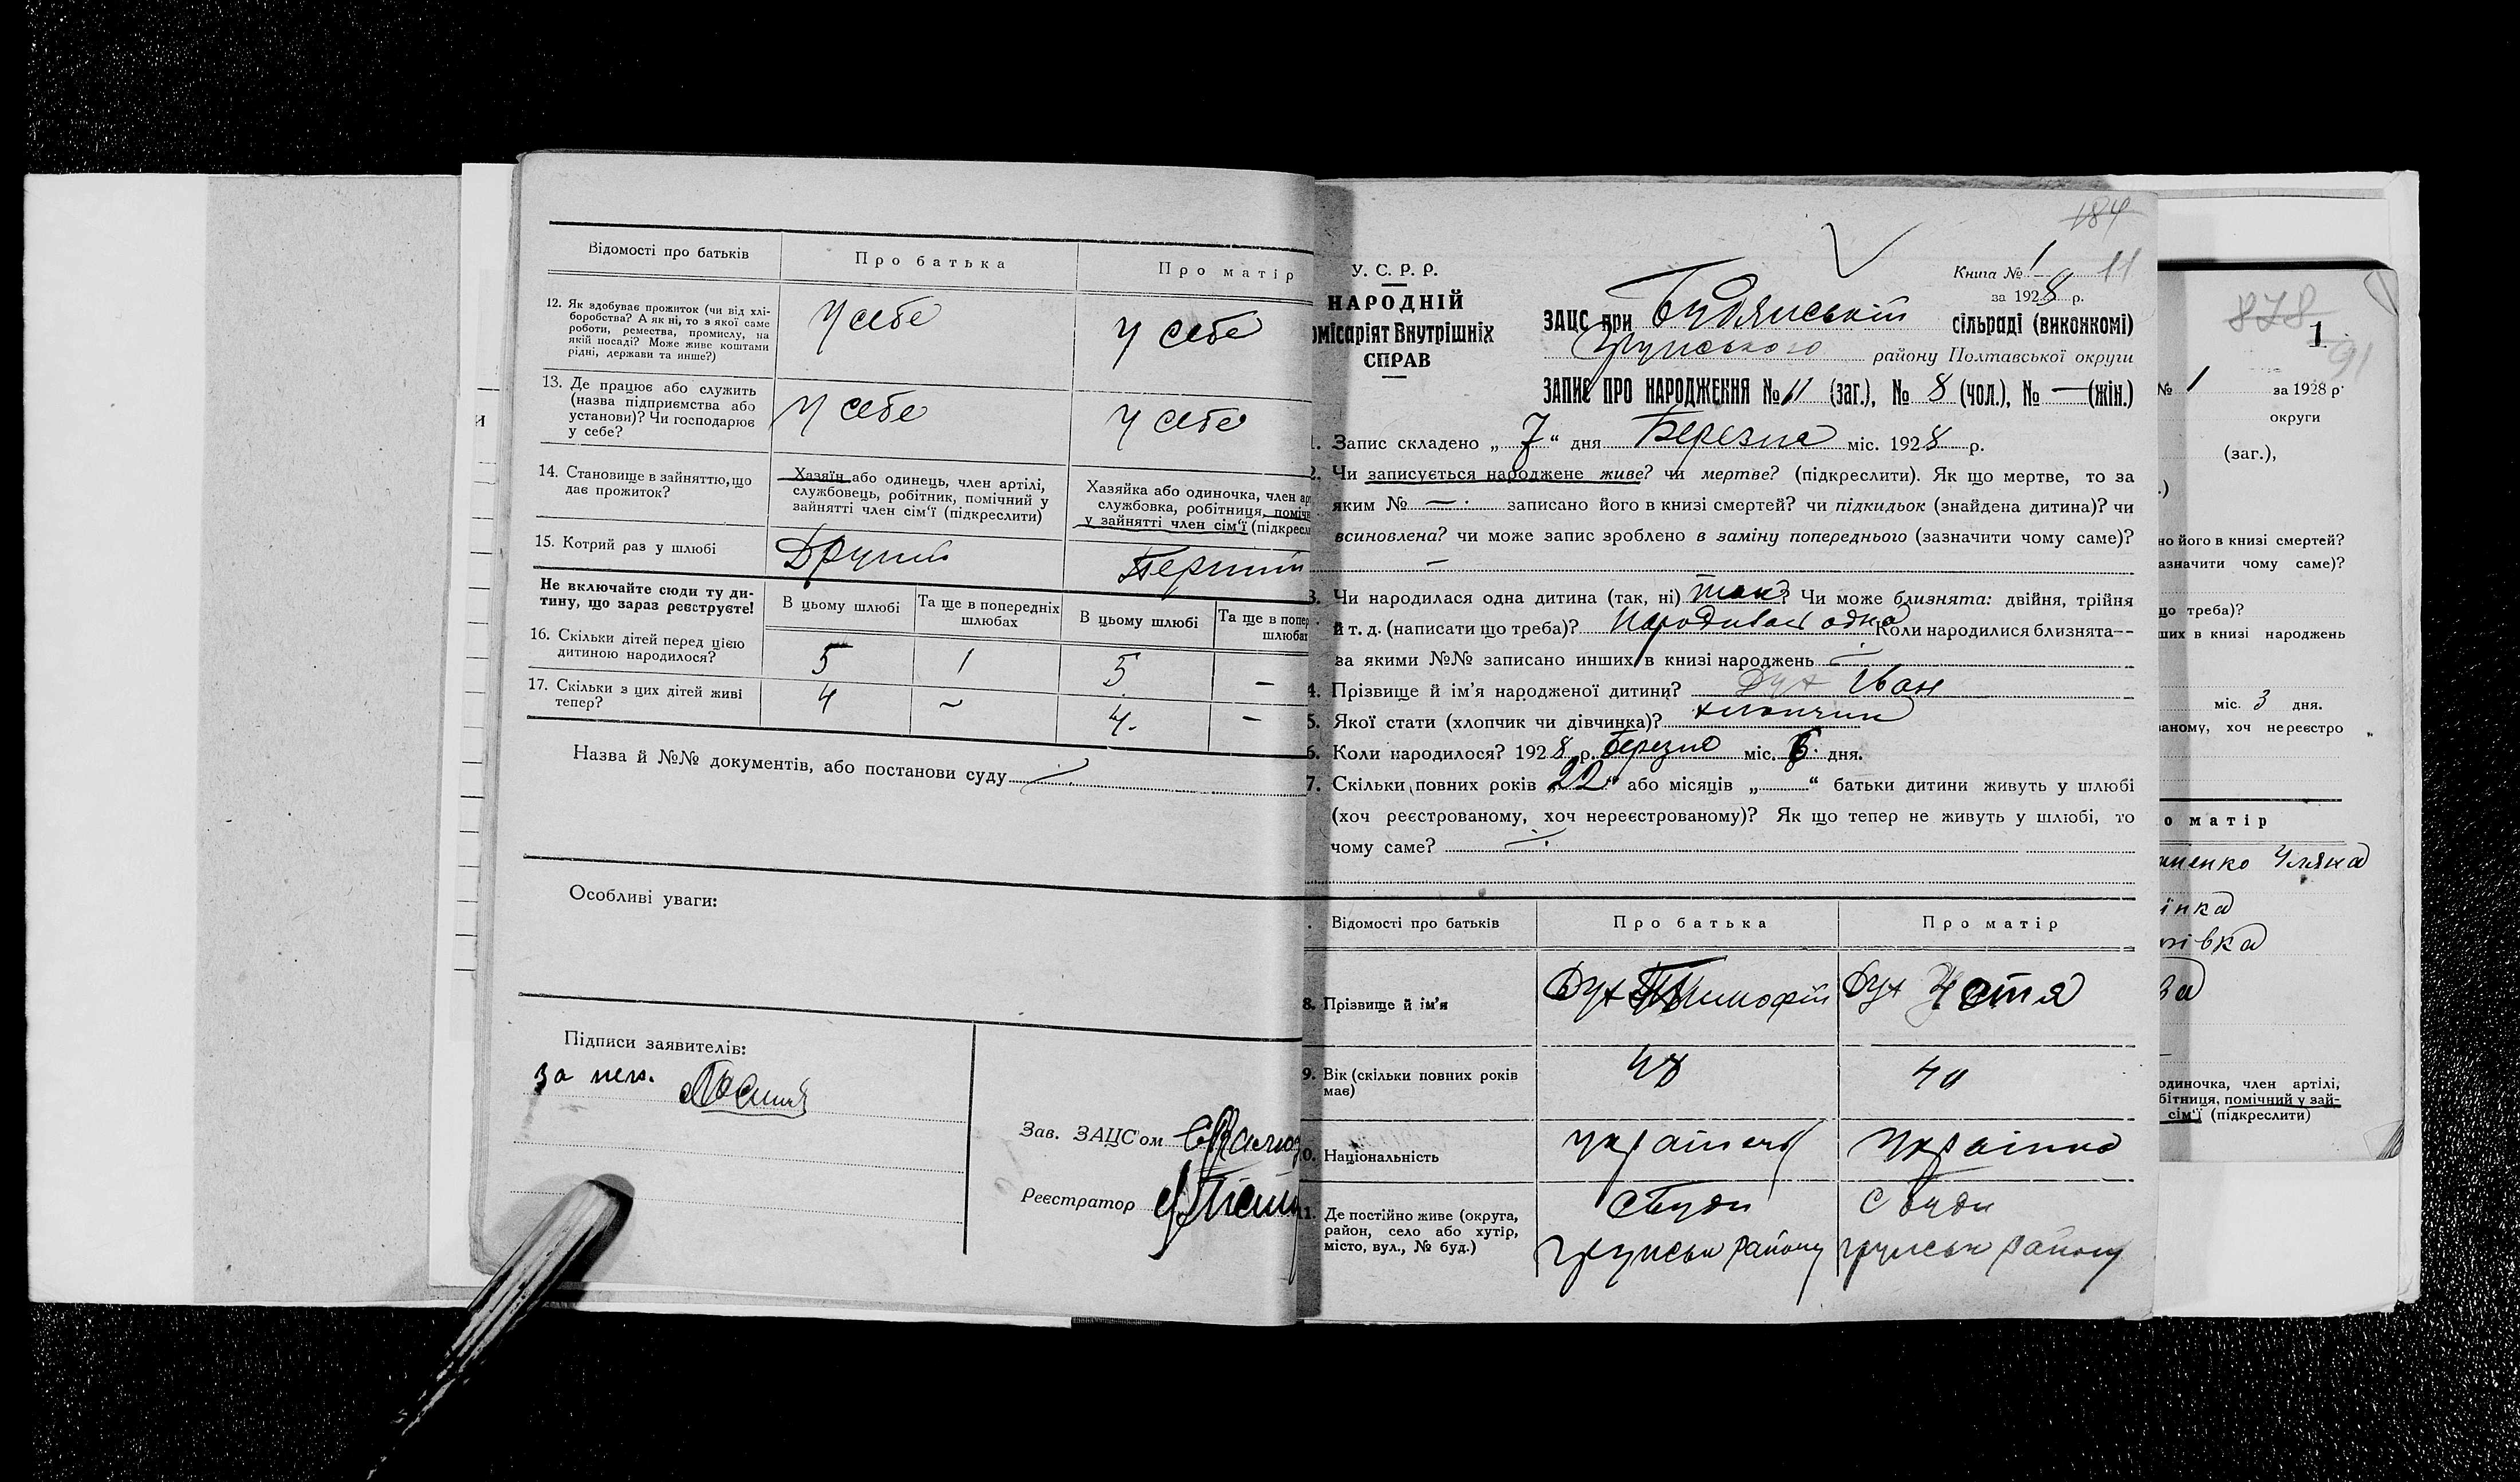 Відомості про батьків
Про батька
Про матір
12. Як здобуває прожиток (чи від хлі-
боробства? А як ні, то з якої саме
роботи, ремества, промислу, на
якій посаді? Може живе коштами
рідні, держави та инше?)
У себе
у себе
13. Де працює або служить
(назва підприємства або
установи)? Чи господарює
у себе?
У себе
у себе
14. Становище в зайняттю, що
дає прожиток?
Хазяїн або одинець, член артілі,
службовець, робітник, помічний у
зайнятті член сім'ї (підкреслити)
Хазяйка або одиночка, член ар
службовка, робітниця, поміч
у зайнятті член сім'ї (підкресл
15. Котрий раз у шлюбі
Другий
Перший
Не включайте сюди ту ди-
тину, що зараз реєструєте!
В цьому шлюбі
Та ще в попередніх
шлюбах
В цьому шлюбі
Та ще в попер
шлюбах
16. Скільки дітей перед цією
дитиною народилося?
5
1
5
—
17. Скільки з цих дітей живі
тепер?
4
~
4.
—
Назва й №№ документів, або постанови суду
Особливі уваги:
Підписи заявителів:
за неп.
Зав. ЗАЦС'ом
Реєстратор
184
У. С. Р. Р.
НАРОДНІЙ
омісаріят Внутрішніх
СПРАВ
Книга № 1 11
за 1928 р.
ЗАЦС при Будянській сільраді (виконкомі)
Грунського району Полтавської округи
ЗАПИС ПРО НАРОДЖЕННЯ № 11 (заг.), № 8 (чол.), № — (жін.)
1. Запис складено „ 7 “ дня Березня міс. 1928 р.
2. Чи записується народжене живе? чи мертве? (підкреслити). Як що мертве, то за
яким № — записано його в книзі смертей? чи підкидьок (знайдена дитина)? чи
всиновлена? чи може запис зроблено в заміну попереднього (зазначити чому саме)?
—
3. Чи народилася одна дитина (так, ні) так? Чи може близнята: двійня, трійня
й т. д. (написати що треба)? Народилась одна Коли народилися близнята—
за якими №№ записано инших в книзі народжень
4. Прізвище й ім'я народженої дитини? Дух Іван
5. Якої стати (хлопчик чи дівчинка)? хлопчик
6. Коли народилося? 1928 р. березня міс. 6 дня.
7. Скільки повних років „ 22 “ або місяців „ “ батьки дитини живуть у шлюбі
(хоч реєстрованому, хоч нереєстрованому)? Як що тепер не живуть у шлюбі, то
чому саме?
Відомості про батьків
Про батька
Про матір
8. Прізвище й ім'я
Дух Тимофій
Дух Устя
9. Вік (скільки повних років
має)
48
40
0. Національність
українець
українка
11. Де постійно живе (округа,
район, село або хутір,
місто, вул., № буд.)
с Буди
Грунськ району
с Буди
Грунськ району
878
1
91
№ 1 за 1928 р.
округи
(заг.),
.)
но його в книзі смертей?
азначити чому саме)?
що треба)?
ших в книзі народжень
міс. 3 дня.
ваному, хоч нереєстро
о матір
иненко Уляна
їнка
івка
ва
—
одиночка, член артілі,
бітниця, помічний у зай-
сім'ї (підкреслити)